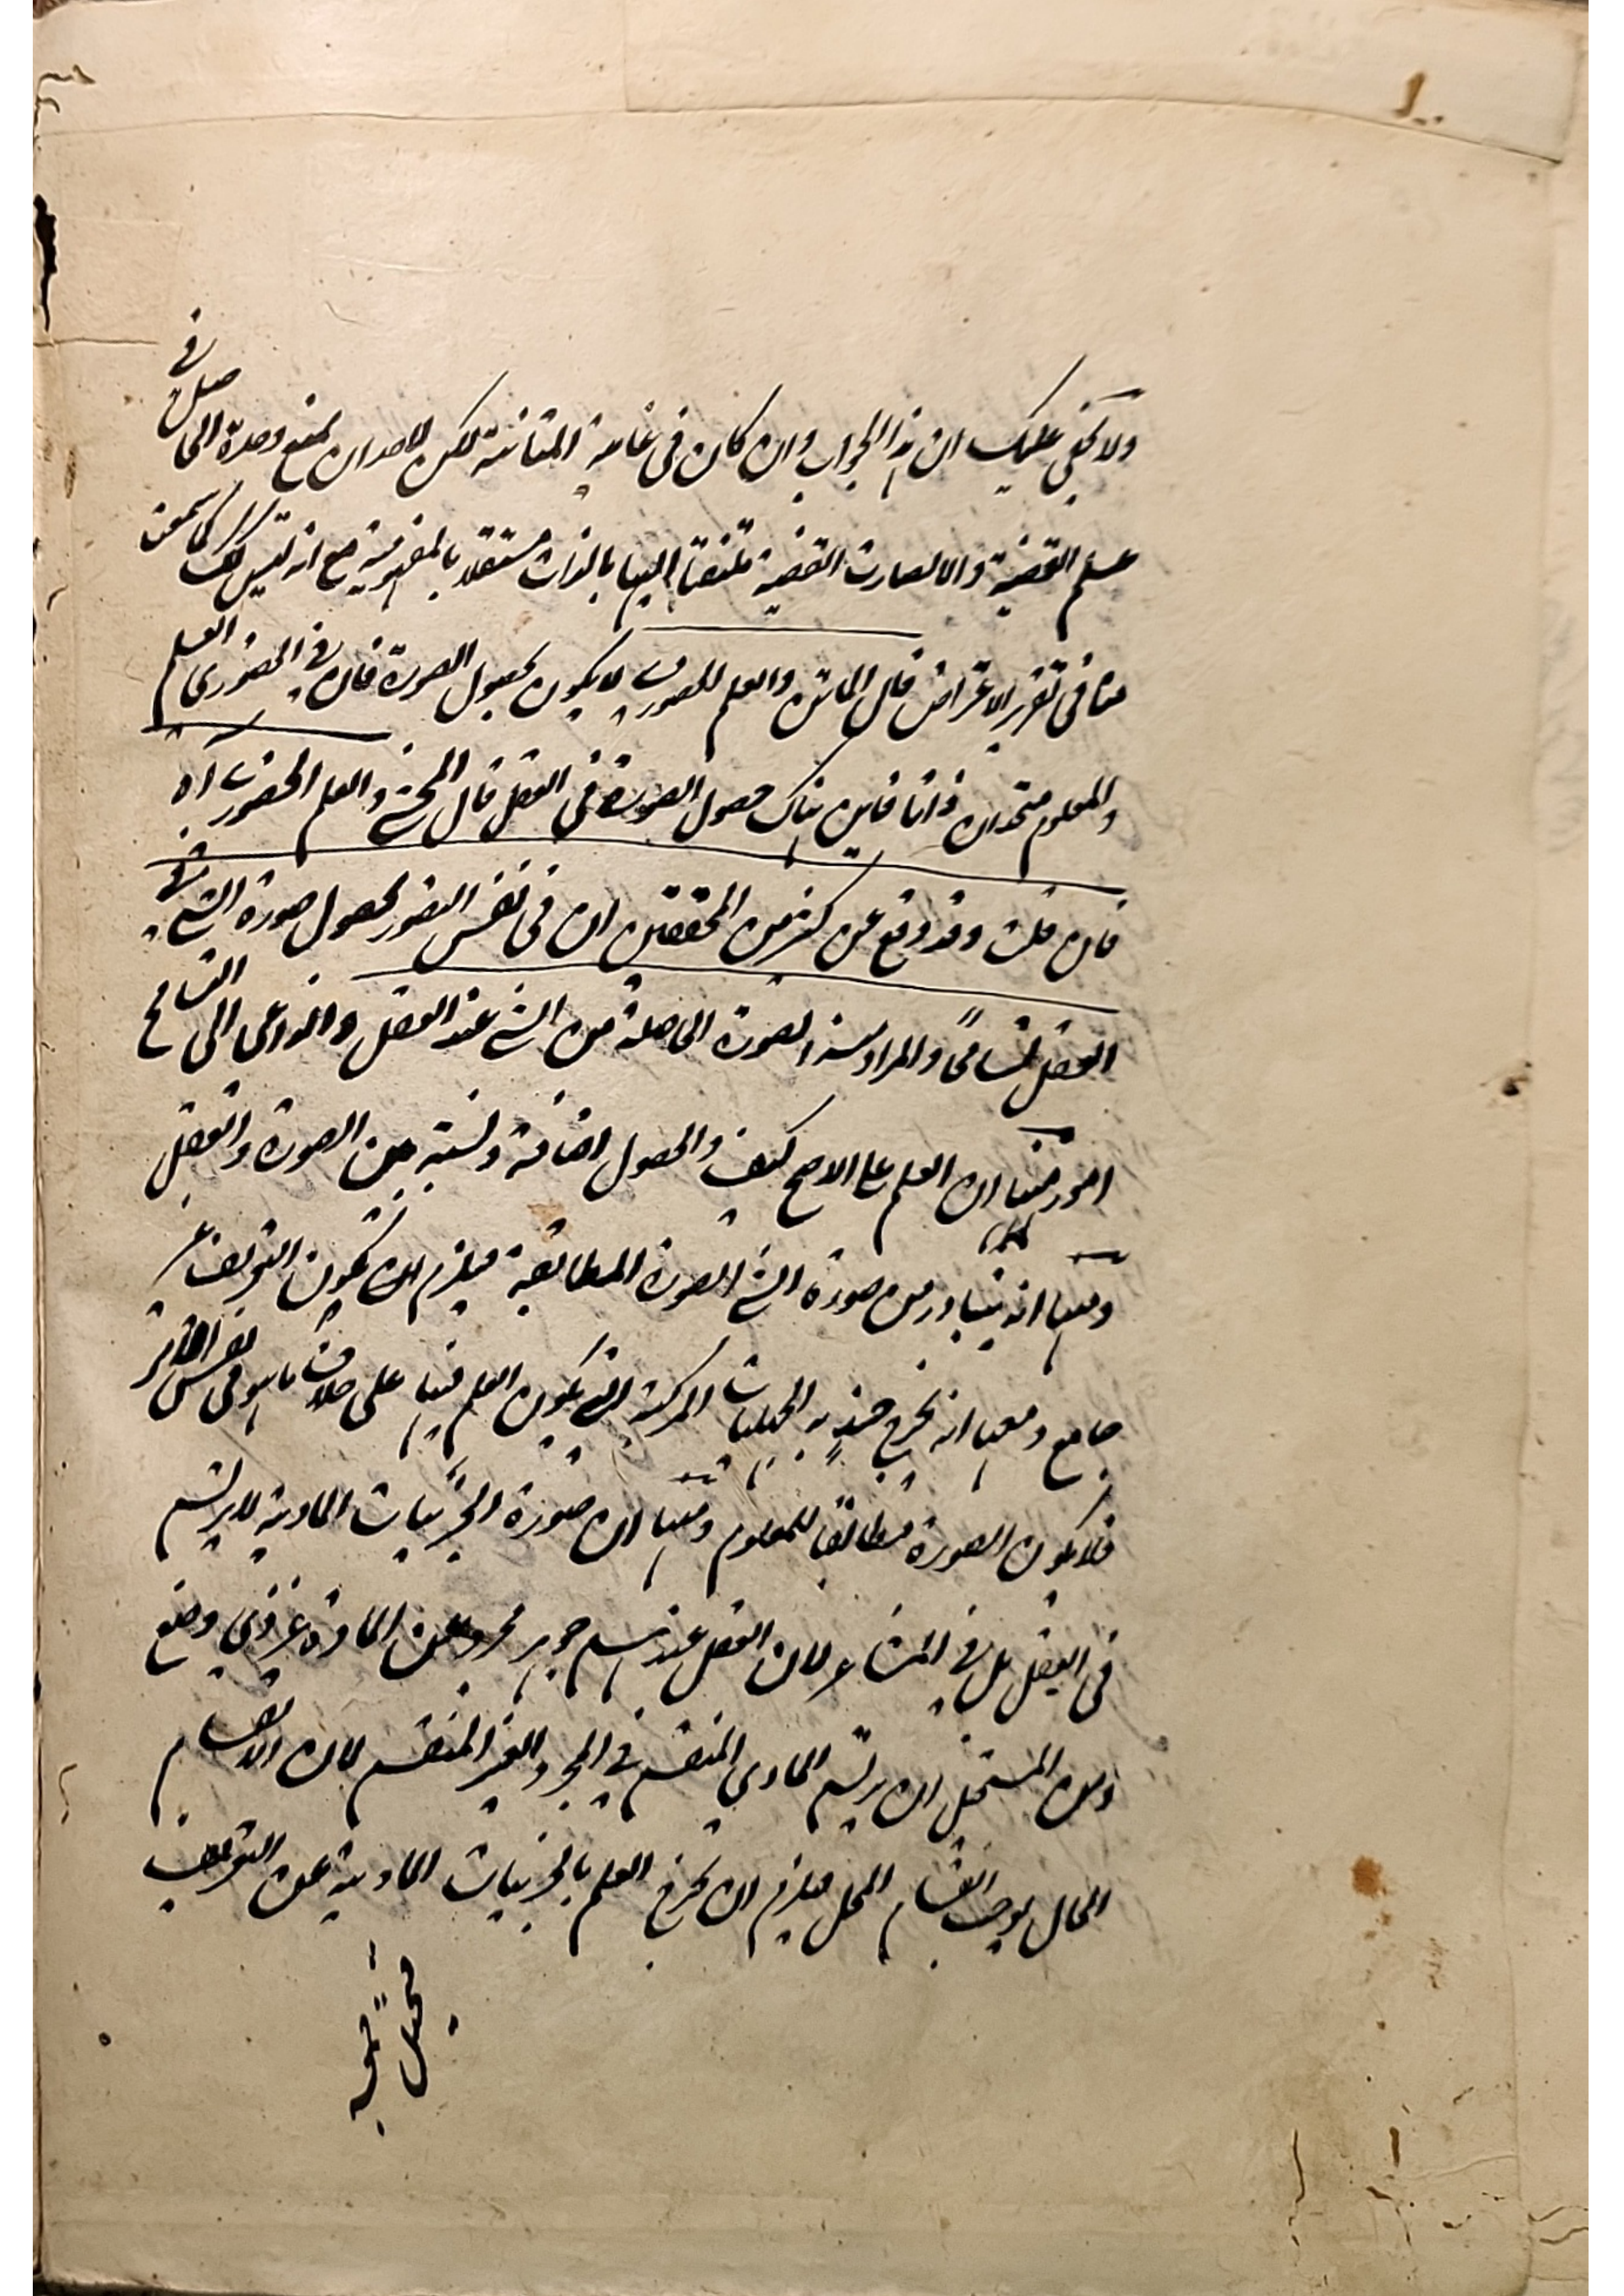 ١٠٠
ولا يخفى عليك ان هذا الجواب وان كان فى غاية المتانة لكن لاحد ان يمنع وحدة الحاصل فى
علم القضية والا لصارت القضية ملتفتا اليها بالذات مستقلا بالمفهومية مع انه ليس كك كما سمعت
منا فى تقرير الاعتراض قال الماتن والعلم للصورى لا يكون بحصول الصورة فان فى الحضورى العلم
والمعلوم متحدان ذاتا فاين هناك حصول الصورة فى العقل قال المحشى والعلم الحضورى اه
فان قلت وقد وقع عن كثير من المحققين ان فى نفس التصور بحصول صورة الشى فى
العقل تسامحاً والمراد منه الصورة الحاصلة من الشى عند العقل والداعى الى التسامح
امور منها ان العلم على الاصح كيف والحصول اضافة ونسبة بين الصورة والعقل
ومنها انه يتبادر من صورة الشى الصورة المطابقة فيلزم ان يكون التعريف غير
جامع ومنها انه يخرج حينئذٍ به الجهليات المركبة التى يكون العلم فيها على خلاف ما هو فى نفس الامر
فلا يكون الصورة مطابقاً للمعلوم ومنها ان صورة الجزئيات المادية لا يرتسم
فى العقل بل فى المشاعر لان العقل عندهم جوهر مجرد عن المادة غير ذى وضع
ومن المستحيل ان يرتسم المادى المنقسم فى المجرد الغير المنقسم لان انقسام
الحال يوجب انقسام المحل فيلزم ان يخرج العلم بالجزئيات المادية عن التعريف